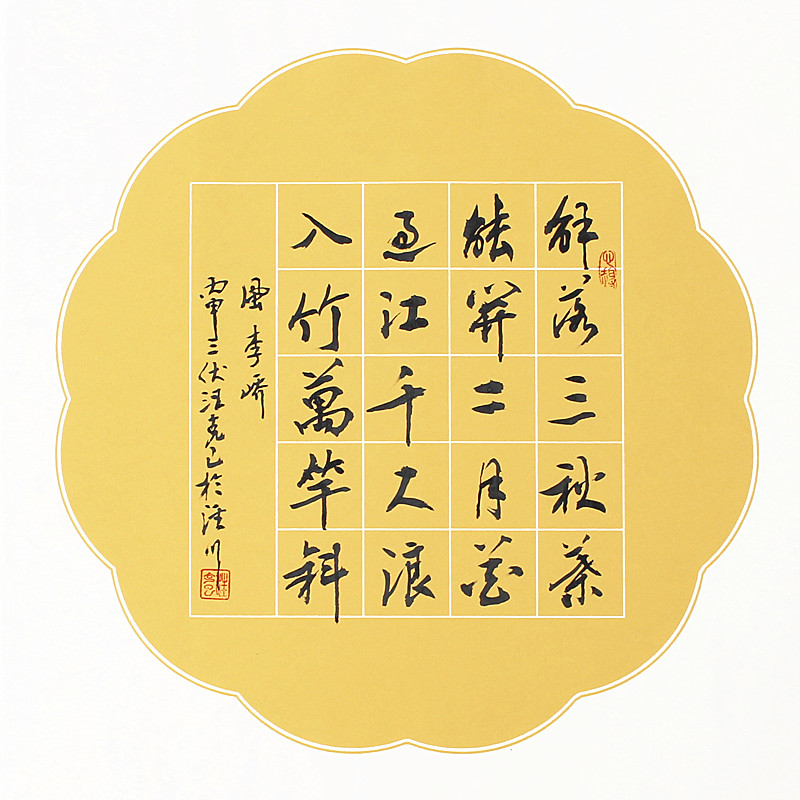 解落三秋葉
能開二月花
過江千尺浪
入竹萬竿斜
風 李嶠
丙申三伏汪克己於涇川